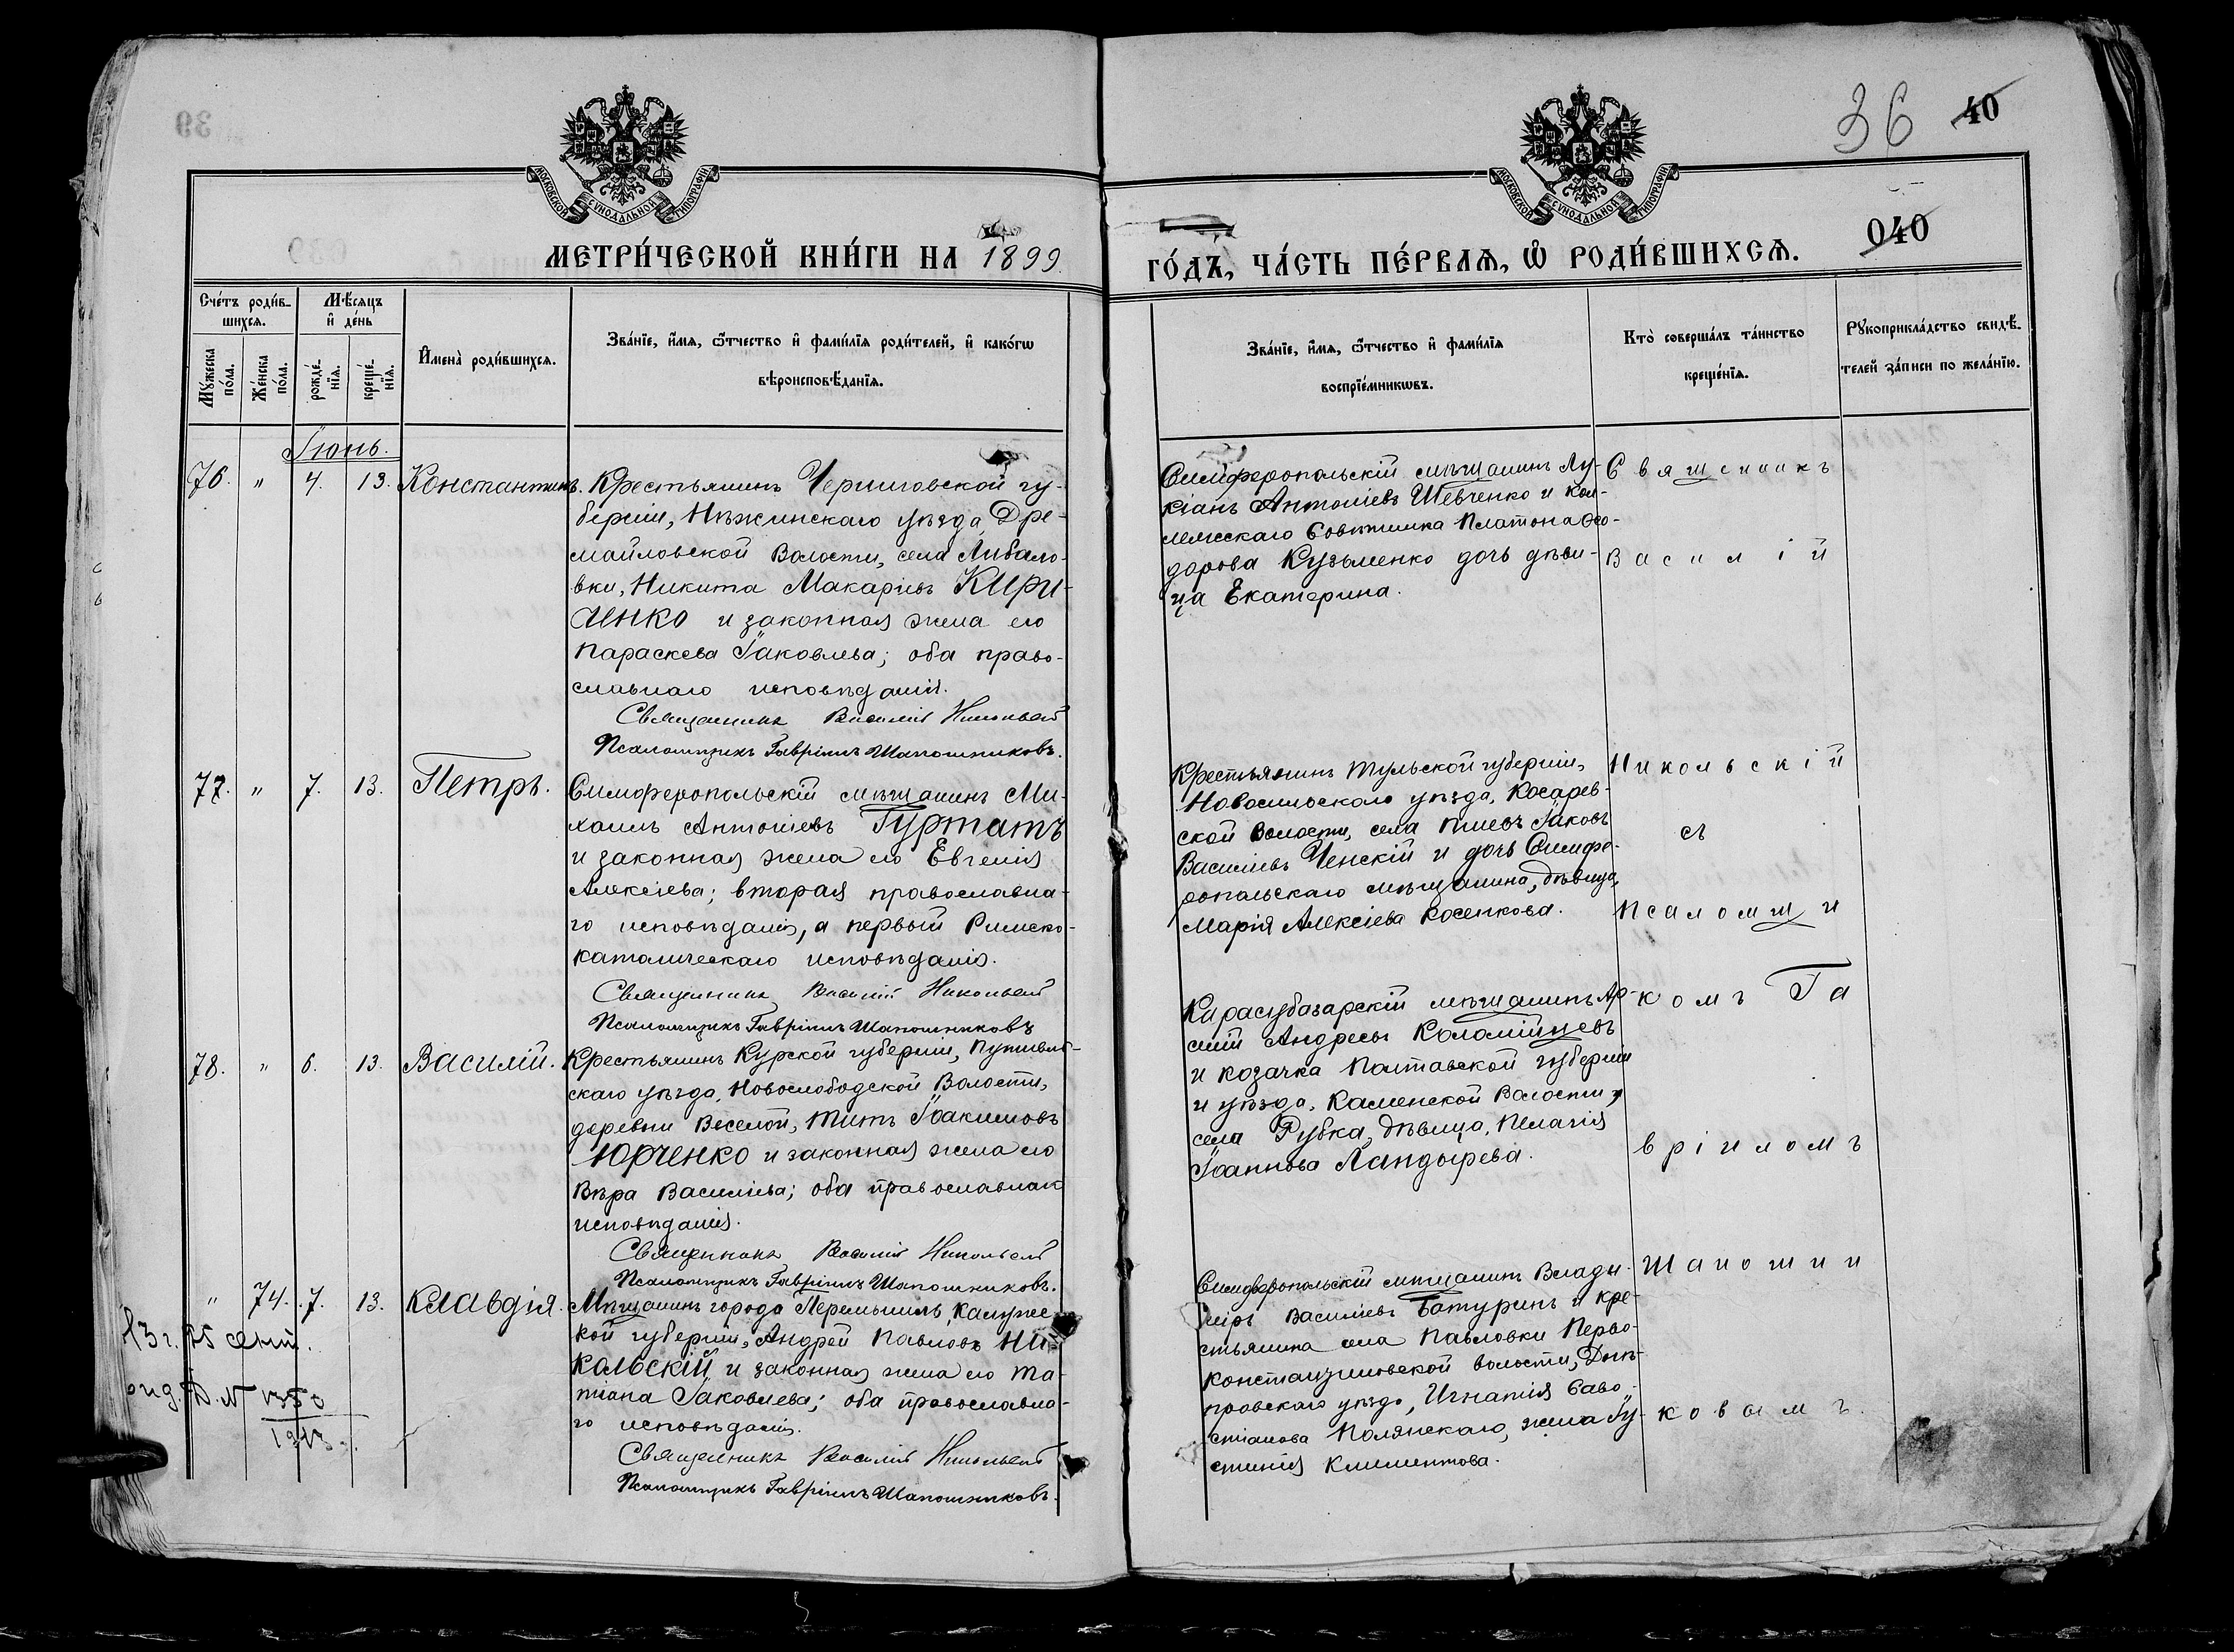 39
36 40
МОСКОВСКОЙ СУНОДАЛЬНОЙ ТИПОГРАФИИ
МОСКОВСКОЙ СУНОДАЛЬНОЙ ТИПОГРАФИИ
040
МЕТРИ́ЧЕСКОЙ КНИ́ГИ НА 1899
ГО́ДЪ, ЧА́СТЬ ПЕ́РВАѦ, Ѡ РОДИ́ВШИХСѦ.
Сче́тъ роди́в-
шихсѧ.
Мꙋжеска по́ла.
Же́нска по́ла.
Мѣ́сѧцъ
и҆ де́нь
рожде́-
нїѧ.
креще́-
нїѧ.
И҆мена̀ роди́вшихсѧ.
Зва́нїе, и҆́мѧ, ѻ҆́тчество и҆ фами́лїѧ роди́телей, и҆ како́гѡ
вѣроисповѣ́данїѧ.
Зва́нїе, и҆́мѧ, ѻ҆́тчество и҆ фами́лїѧ
воспрїе́мникѡвъ.
Кто̀ соверша́лъ та́инство
креще́нїѧ.
Рꙋкоприкла́дство свидѣ́-
телей за́писи по жела́нїю.
Іюнь.
76. " 4. 13. Константинъ.
Крестьянинъ Черниговской гу-
берніи, Нѣжинскаго уѣзда, Дре-
майловской Волости, села
вки, Никита Макаріевъ Кири-
ченко и законная жена его
Параскева Іаковлева; оба право-
славнаго исповѣданія.
Священникъ Василій Никольскій
Псаломщикъ Гавріилъ Шапошниковъ.
Симферопольскій мѣщанинъ Лу-
кіанъ Антоніевъ Шевченко и кол-
лежскаго Совѣтника Платона Фео-
дорова Кузьменко дочь дѣви-
ца Екатерина.
77. " 7. 13. Петръ.
Симферопольскій мѣщанинъ Ми-
хаилъ Антоніевъ Гуртатъ
и законная жена его Евгенія
Алексіева; вторая православна-
го исповѣданія, а первый Римско-
католическаго исповѣданія.
Священникъ Василій Никольскій
Псаломщикъ Гавріилъ Шапошниковъ
Крестьянинъ Тульской губерніи,
Новосильскаго уѣзда, Косарев-
ской Волости, села Іаковъ
Василіевъ Ченскій и дочь Симфе-
ропольскаго мѣщанина, дѣвица,
Марія Алексіева Косенкова.
78. " 6. 13. Василій.
Крестьянинъ Курской губерніи, Путивль-
скаго уѣзда, Новослободской Волости,
деревни Веселой, Титъ Іоакимовъ
Юрченко и законная жена его
Вѣра Василіева; оба православнаго
исповѣданія.
Священникъ Василій Никольскій
Псаломщикъ Гавріилъ Шапошниковъ.
Карасубазарскій мѣщанинъ Ар-
сеній Андреевъ Коломійцевъ
и козачка Полтавской губерніи
и уѣзда, Каменской Волости,
села Рубка, дѣвица, Пелагія
Іоаннова Ландырева.
" 74. 7. 13. Клавдія.
Мѣщанинъ города Перемышля, Калужс-
кой губерніи, Андрей Павловъ Ни-
кольскій и законная жена его Та-
тіана Іаковлева; оба православна-
го исповѣданія.
Священникъ Василій Никольскій
Псаломщикъ Гавріилъ Шапошниковъ.
Симферопольскій мѣщанинъ Влади-
міръ Василіевъ Батуринъ и кре-
стьянина села Павловки Перво-
константиновской волости, Днѣ-
провскаго уѣзда, Игнатія Сево-
стіанова Полянскаго, жена Іу-
стинія Климентова.
Священникъ
Василій
Никольскій
съ
Псаломщи
комъ Га
вріиломъ
Шапошни
ковымъ.
13 г. 25 сент.
1350
1913